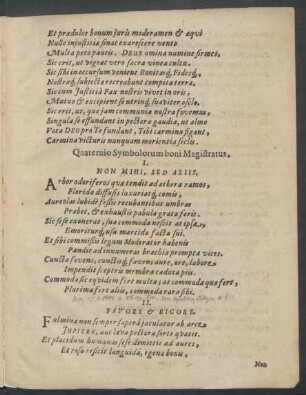 Et prædulce bonum juris moderamen & æqui
Nullo injustitiæ sinat exarescere vento
Multa peto paucis. DEUS omina numine firmet.
Sic erit, ut vigeat vero sacra vinea cultu.
Sic sibi in occursum venient Bonitasq́, Fidesq́,
Nostrasq́ subjecta recreabunt compita terra.
Sic cum Justitiâ Pax nostris vivet in oris,
Mutuo & excipient se utrinq́ suaviter osclo.
Sic erit, ut, qua jam communia nostra fovemus,
Singula se effundant in pectora gaudia, ut almo
Vota DEO pro Te fundant, Tibi carmina figent,
Carmina victuris nunquam morientia seclis.
Quaternio Symbolorum boni Magistratus.
I.
NON MIHI, SED ALIIS.
Arbor odoriferos quæ tendit ad æthera ramos,
Florida diffusis luxuriatq́ comis,
Aureolas lubidè fessis recubantibus umbras
Præbet, & exhaustis pabula grata ferit.
Sic sese exonerat, sua commoda nescit at ipsa,
Emoriturq́, usu marcida facta sui.
Et sibi commissis legum Moderator habenis
Pandit ad innumeras brachia prompta vices.
Cuncta fovens, cunctisq́ favens aure, ore, labore
Impendit sceptri membra caduca piis.
Commoda sic eqvidem fert multa; at commoda quæ fert,
Plurima fert aliis, commoda rara sibi.
II.
FAVORE & RIGORE.
Fulmina non semper supera jaculatur ab arce
JUPITER, aut læva pectora sorte quatit.
Et placidum humanas sese demittit ad aures,
Et rosa reficit languida, egena bonis,
Non